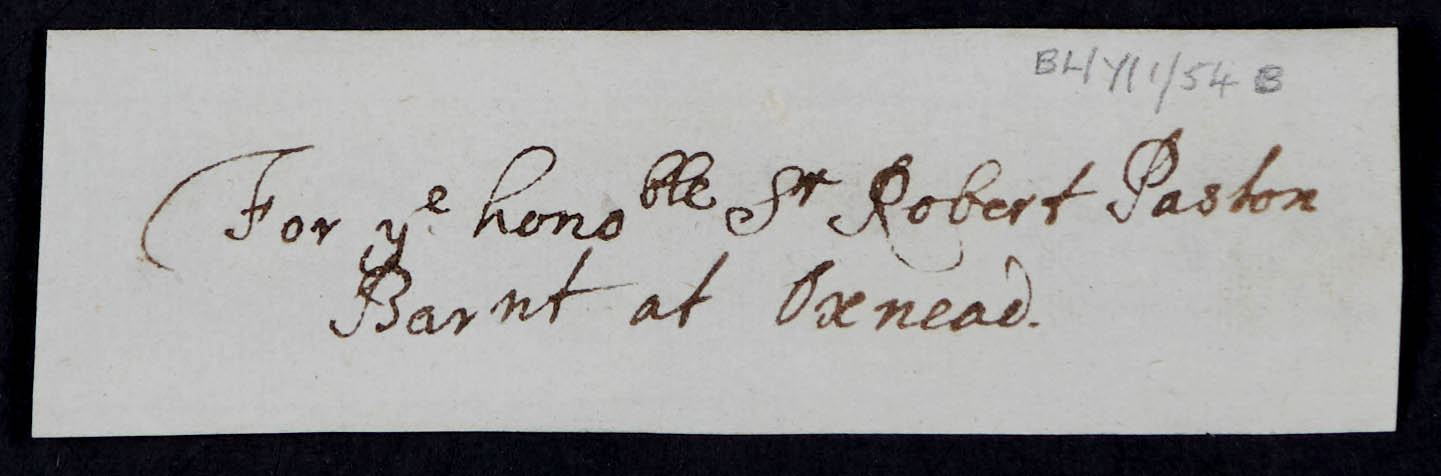 BL/Y/1/54 B
For yͤ honoble Sr Robert Paston
Barnt at Oxnead.